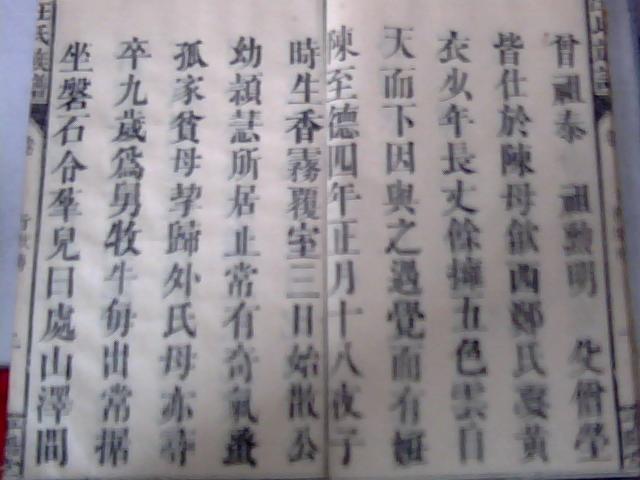 汪氏族譜
曾祖泰 祖勳明 父僧瑩
皆仕於陳母歙西鄭氏夢黃
衣少年長丈餘擁五色雲自
天而下因與之遇覺而有娠
陳至德四年正月十八夜子
時生香霧覆室三日始散公
幼穎慧所居止常有奇氣蚤
孤家貧母挈歸外氏母亦尋
卒九歲爲男牧牛每出常据
坐磐石令羣兒曰處山澤間
汪氏族譜